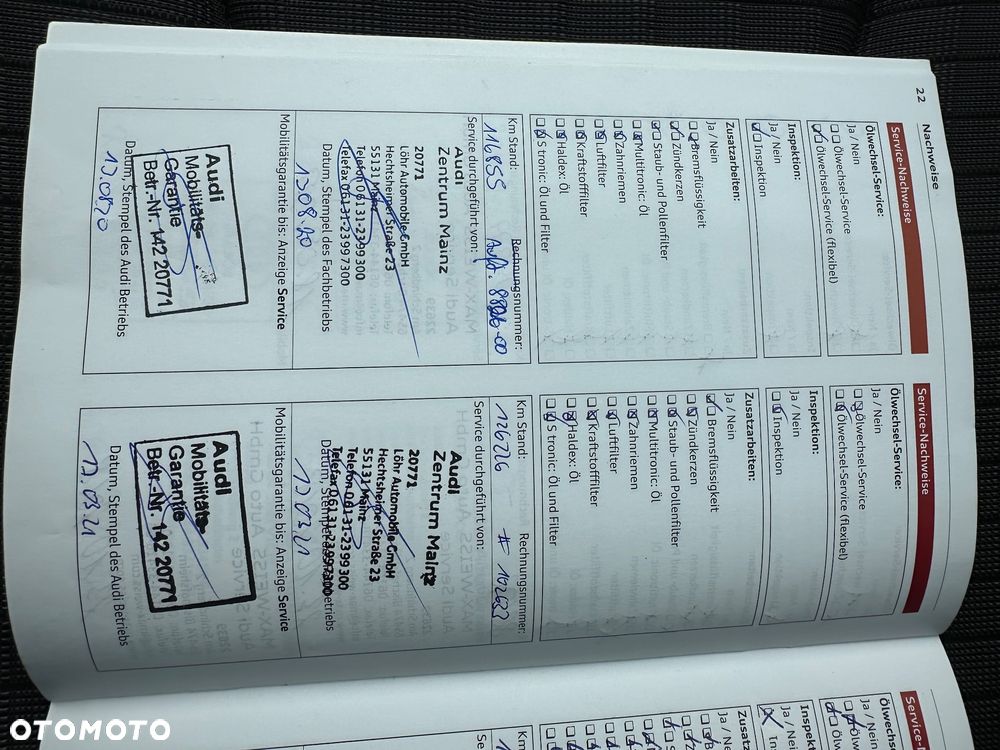 22 Nachweise
Service-Nachweise
Ölwechsel-Service:
Ja / Nein
Ölwechsel-Service
Ölwechsel-Service (flexibel)
Inspektion:
Ja / Nein
Inspektion
Zusatzarbeiten:
Ja / Nein
Bremsflüssigkeit
Zündkerzen
Staub- und Pollenfilter
Multitronic: Öl
Zahnriemen
Luftfilter
Kraftstofffilter
Haldex: Öl
S tronic: Öl und Filter
Km Stand: Rechnungsnummer:
116855 Auft.
Service durchgeführt von:
Audi
Zentrum Mainz
20771
Löhr Automobile GmbH
Hechtsheimer Straße 23
55131 Mainz
Telefon 0 61 31-23 99 300
Telefax 0 61 31-23 99 7300
12.08.20
Datum, Stempel des Fachbetriebs
Mobilitätsgarantie bis: Anzeige Service
Audi
Mobilitäts-
Garantie
Betr.-Nr. 142 20771
12.08.20
Datum, Stempel des Audi Betriebs
Service-Nachweise
Ölwechsel-Service:
Ja / Nein
Ölwechsel-Service
Ölwechsel-Service (flexibel)
Inspektion:
Ja / Nein
Inspektion
Zusatzarbeiten:
Ja / Nein
Bremsflüssigkeit
Zündkerzen
Staub- und Pollenfilter
Multitronic: Öl
Zahnriemen
Luftfilter
Kraftstofffilter
Haldex: Öl
S tronic: Öl und Filter
Km Stand: Rechnungsnummer:
126726 # 102633
Service durchgeführt von:
Audi
Zentrum Mainz
20771
Löhr Automobile GmbH
Hechtsheimer Straße 23
55131 Mainz
Telefon 0 61 31-23 99 300
Telefax 0 61 31-23 99 7300
Datum, Stempel des Fachbetriebs
12.03.21
Mobilitätsgarantie bis: Anzeige Service
Audi
Mobilitäts-
Garantie
Betr.-Nr. 142 20771
12.03.21
Datum, Stempel des Audi Betriebs
OTOMOTO